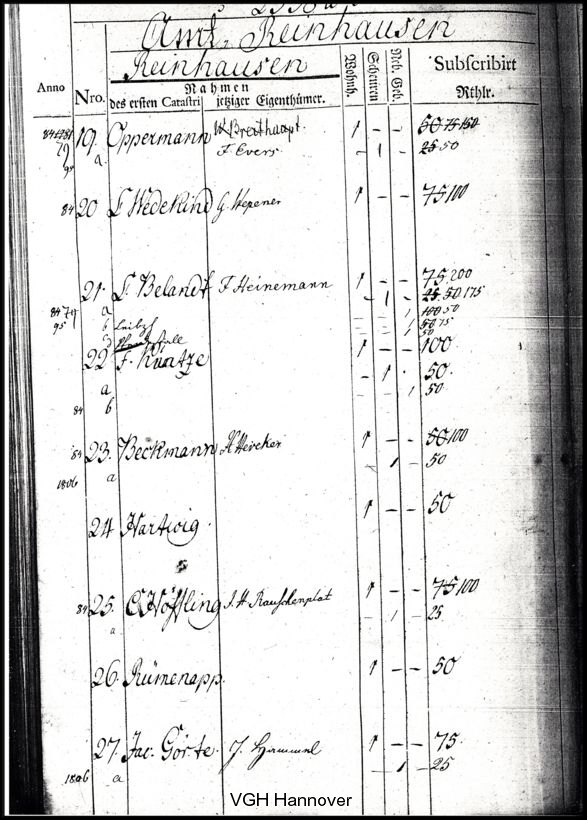 Amt, Reinhausen
Reinhausen
Anno Nro. Nahmen Wohnh. Scheuren Neb. Geb. Subscribirt
des ersten Catastri jetziger Eigenthümer. Rthlr.
19. Oppermann W Breithaupt 1 - - 50 75 150
79 a. F. Evers - 1 - 25 50
95
84 20 L Wedekind G. Wepener 1 - - 75 100
21. L. Belandt F Heinemann 1 - - 75 200
a - 1 - 25. 50. 175
84 79 b 1 100 50
95 50 75
22 F. Küntze 1 - - 100
a - 1 50.
84 b 1 50.
84 23. Beckmann 1 - - 50 100
1806 a 1 50
24 Hartwig. 1 - - 50
84 25. Höffling J. H Rauschenplat 1 - - 75 100
a 1 25
26. Rümenapp. 1 - - 50
27. Jac. Görte J. Hammel 1 - - 75
1806 a 1 - 25
VGH Hannover